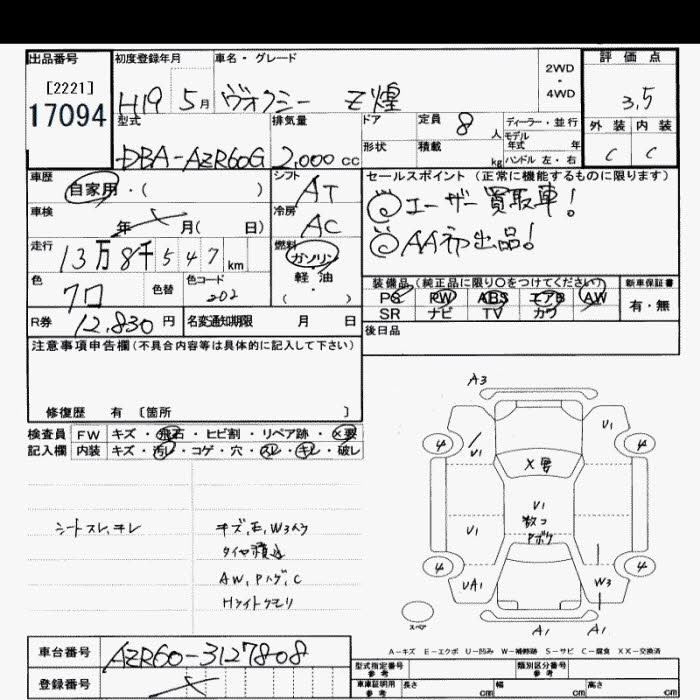 出品番号 初度登録年月 車名・グレード 2WD・4WD 評価点
[2221]
17094
H19 5月 ヴォクシー Z煌
3.5
型式 排気量 ドア 定員 8人 ディーラー・並行 外装 内装
形状 積載 kg モデル年式 年 ハンドル 左・右
DBA-AZR60G 2,000cc
C C
車歴 シフト セールスポイント (正常に機能するものに限ります)
自家用・( ) AT
◎ユーザー買取車!
車検 冷房
年 月( 日) AC
◎AA初出品!
走行 燃料
13万8千547km ガソリン・軽油
色 色替 色コード ( )
クロ 202
装備品(純正品に限り○をつけてください) 新車保証書
PS PW ABS エアB AW 有・無
SR ナビ TV カワ
R券 12,830円 名変通知期限 月 日
後日品
注意事項申告欄(不具合内容等は具体的に記入して下さい)
修復歴 有 〔箇所 〕
検査員 FW キズ・飛石・ヒビ割・リペア跡・X要
記入欄 内装 キズ・汚レ・コゲ・穴・スレ・キレ・破レ
シートスレ、キレ
キズ、E、W3入ク
タイヤ積込
AW、Pハゲ、C
Hライトクモリ
A3
V1
4 V1 4
X要
V1
数コ
Pボケ
V1
4 4
UA1 W3
スペア A1 A1
A-キズ E-エクボ U-凹み W-補修跡 S-サビ C-腐食 XX-交換済
車台番号 AZR60-3127808
登録番号
型式指定番号 参考 類別区分番号 参考
車庫証明用 参考 長さ cm 幅 cm 高さ cm